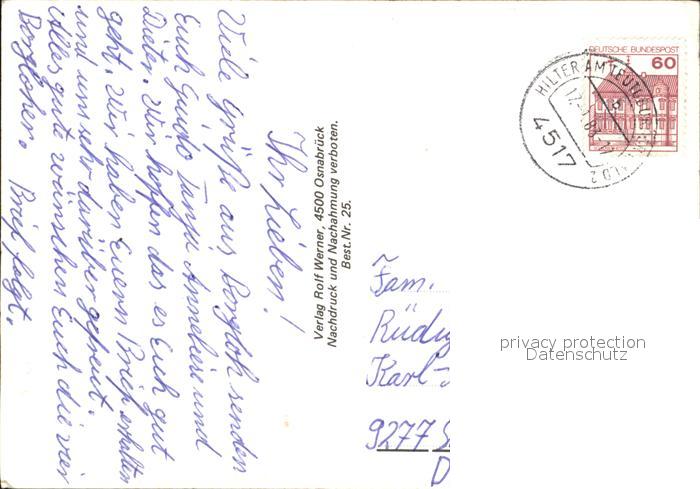 Ihr Lieben!
Viele Grüße aus Borgloh senden
Euch Guido Tanja Anneliese und
Dieter. Wir hoffen das es Euch gut
geht. Wir haben Euern Brief erhalten
und uns sehr darüber gefreut.
Alles gute wünschen Euch die vier
Borgloher. Brief folgt.
Verlag Rolf Werner, 4500 Osnabrück
Nachdruck und Nachahmung verboten.
Best.Nr. 25.
DEUTSCHE BUNDESPOST
60
HILTER AM TEUTO
4517
Fam.
Rüdig
Karl-
9277
privacy protection
Datenschutz